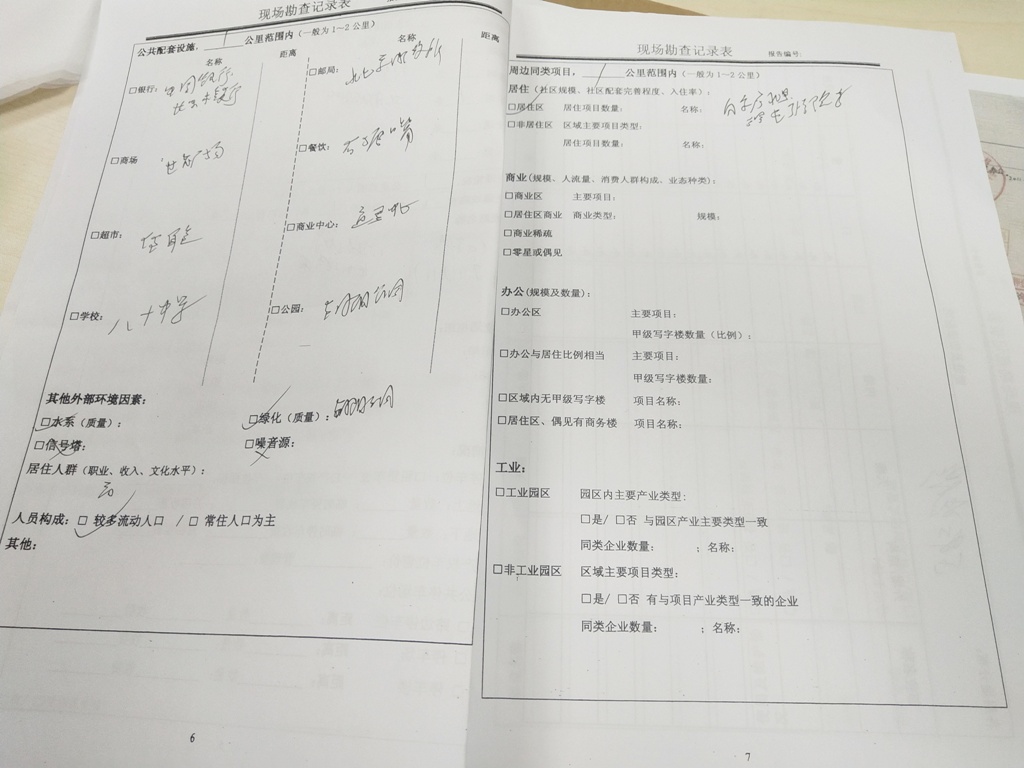 现场勘查记录表
公共配套设施, 1 公里范围内(一般为1~2公里)
名称 距离 名称 距离
□银行: 中国银行 □邮局: 北京邮政所
□商场 世贸广场 □餐饮:
□超市: □商业中心:
□学校: 八十中学 □公园: 朝阳公园
其他外部环境因素:
□水系(质量): □绿化(质量): 朝阳公园
□信号塔: □噪音源:
居住人群(职业、收入、文化水平):
高
人员构成: □ 较多流动人口 / □ 常住人口为主
其他:
6
现场勘查记录表 报告编号:
周边同类项目, 1 公里范围内(一般为1~2公里)
居住(社区规模、社区配套完善程度、入住率):
□居住区 居住项目数量: 名称:
□非居住区 区域主要项目类型:
居住项目数量: 名称:
商业(规模、人流量、消费人群构成、业态种类):
□商业区 主要项目:
□居住区商业 商业类型: 规模:
□商业稀疏
□零星或偶见
办公(规模及数量):
□办公区 主要项目:
甲级写字楼数量(比例):
□办公与居住比例相当 主要项目:
甲级写字楼数量:
□区域内无甲级写字楼 项目名称:
□居住区、偶见有商务楼 项目名称:
工业:
□工业园区 园区内主要产业类型:
□是/ □否 与园区产业主要类型一致
同类企业数量: ; 名称:
□非工业园区 区域主要项目类型:
□是/ □否 有与项目产业类型一致的企业
同类企业数量: ; 名称:
7